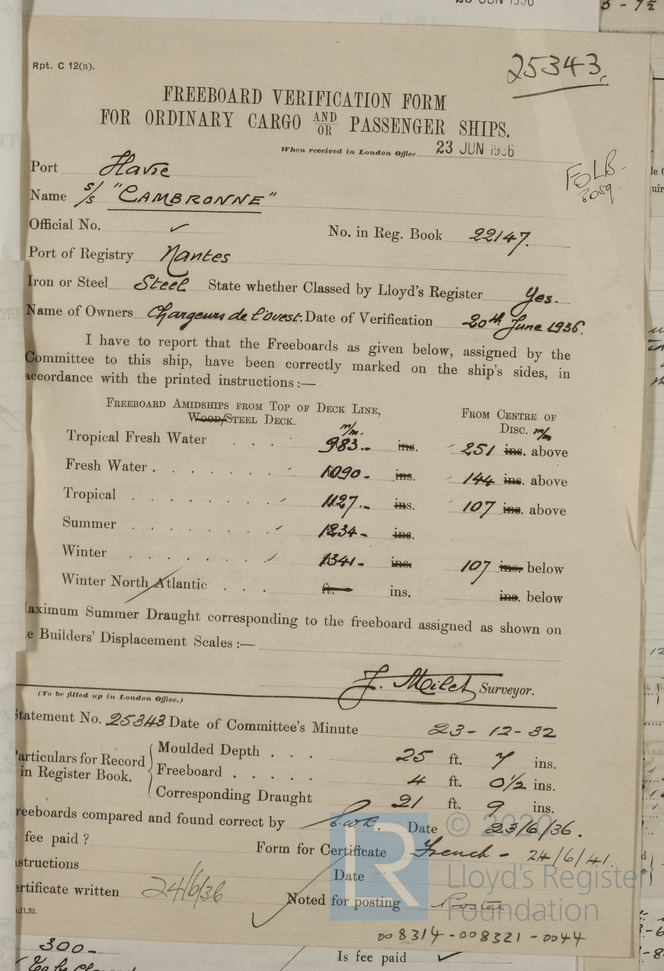 23 JUN 1936
3 - 7½
Rpt. C 12(a).
25343.
FREEBOARD VERIFICATION FORM
FOR ORDINARY CARGO AND/OR PASSENGER SHIPS.
When received in London Office 23 JUN 1936
Port Havre
FOLB.
3059.
Name s/s "CAMBRONNE"
Official No. ✓ No. in Reg. Book 22147.
Port of Registry Nantes
Iron or Steel Steel State whether Classed by Lloyd's Register Yes.
Name of Owners Chargeurs de l'ouest. Date of Verification 20th June 1936.
I have to report that the Freeboards as given below, assigned by the
Committee to this ship, have been correctly marked on the ship's sides, in
accordance with the printed instructions :—
FREEBOARD AMIDSHIPS FROM TOP OF DECK LINE, FROM CENTRE OF
WOOD/STEEL DECK. m/m. DISC. m/m
Tropical Fresh Water . . 983.- ins. 251 ins. above
Fresh Water . . . . . . 1090.- ins. 144 ins. above
Tropical . . . . . . 1127.- ins. 107 ins. above
Summer . . . . . . 1234.- ins.
Winter . . . . . . 1341.- ins. 107 ins. below
Winter North Atlantic . . . ft. ins. ins. below
aximum Summer Draught corresponding to the freeboard assigned as shown on
e Builders' Displacement Scales :—
J. Milet Surveyor.
(To be filled up in London Office.)
Statement No. 25343 Date of Committee's Minute 23-12-32
articulars for Record in Register Book.
Moulded Depth . . . 25 ft. 7 ins.
Freeboard . . . . . 4 ft. 0½ ins.
Corresponding Draught 21 ft. 9 ins.
reeboards compared and found correct by Date 23/6/36.
fee paid ? Form for Certificate French - 24/6/41.
structions Date
ertificate written 24/6/36 Noted for posting Posted
.11.32.
© 2020
Lloyd's Register
Foundation
008314-008321-0044
300-
Is fee paid ✓